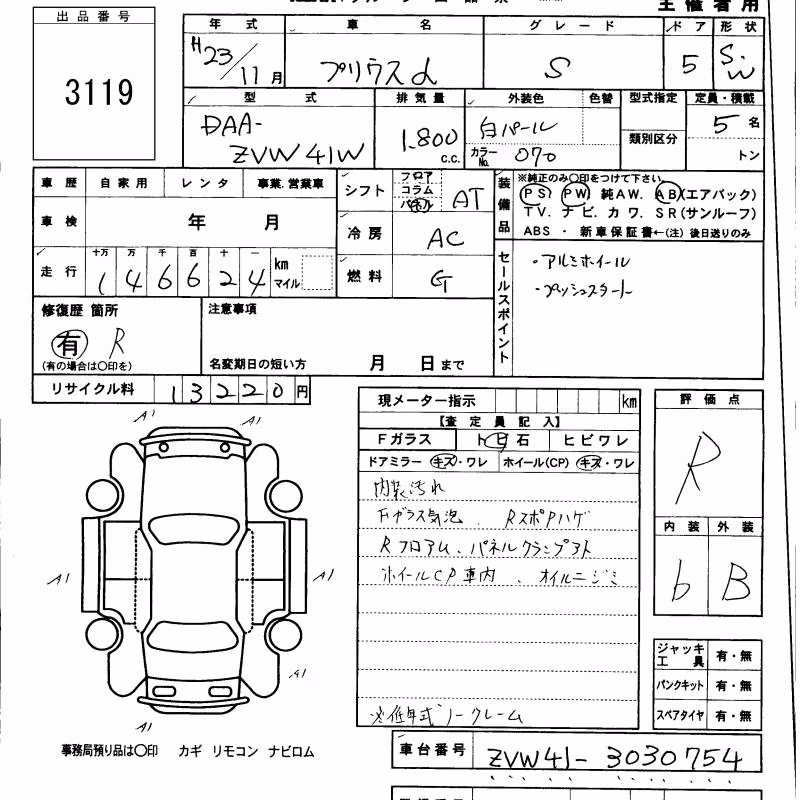 主催者用
出品番号
3119
年式 車名 グレード ドア 形状
H23/11月 プリウスα S 5 S.W
型式 排気量 外装色 色替 型式指定 定員・積載
DAA-ZVW41W 1,800 c.c. 白パール カラーNo. 070 類別区分 5名 トン
車歴 自家用 レンタ 事業.営業車
車検 年 月
走行 十万 万 千 百 十 一
1 4 6 6 2 4 km マイル
シフト フロア コラム パネル AT
冷房 AC
燃料 G
装備品 ※純正のみ〇印をつけて下さい
PS PW 純AW. AB(エアバック)
TV. ナビ. カワ. SR(サンルーフ)
ABS ・ 新車保証書←(注) 後日送りのみ
セールスポイント
・アルミホイール
・プッシュスタート
修復歴 箇所
有 R
(有の場合は〇印を)
注意事項
名変期日の短い方 月 日まで
リサイクル料 13220円
現メーター指示 km
【査定員記入】
Fガラス トビ石 ヒビワレ
ドアミラー キズ・ワレ ホイール(CP) キズ・ワレ
内装汚れ
Fガラス気泡、RスポPハゲ
Rフロアム、パネルクランプアト
ホイールCP車内、オイルニジミ
※低年式ノークレーム
評価点
R
内装 外装
b B
ジャッキ工具 有・無
パンクキット 有・無
スペアタイヤ 有・無
A1 A1
A1 A1
A1
A1
事務局預り品は〇印 カギ リモコン ナビロム
車台番号 ZVW41-3030754